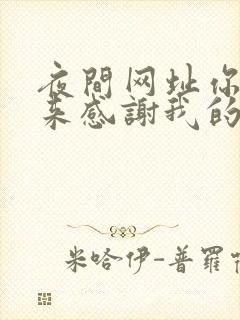 夜間网址你
来感謝我的
米哈伊-普羅特